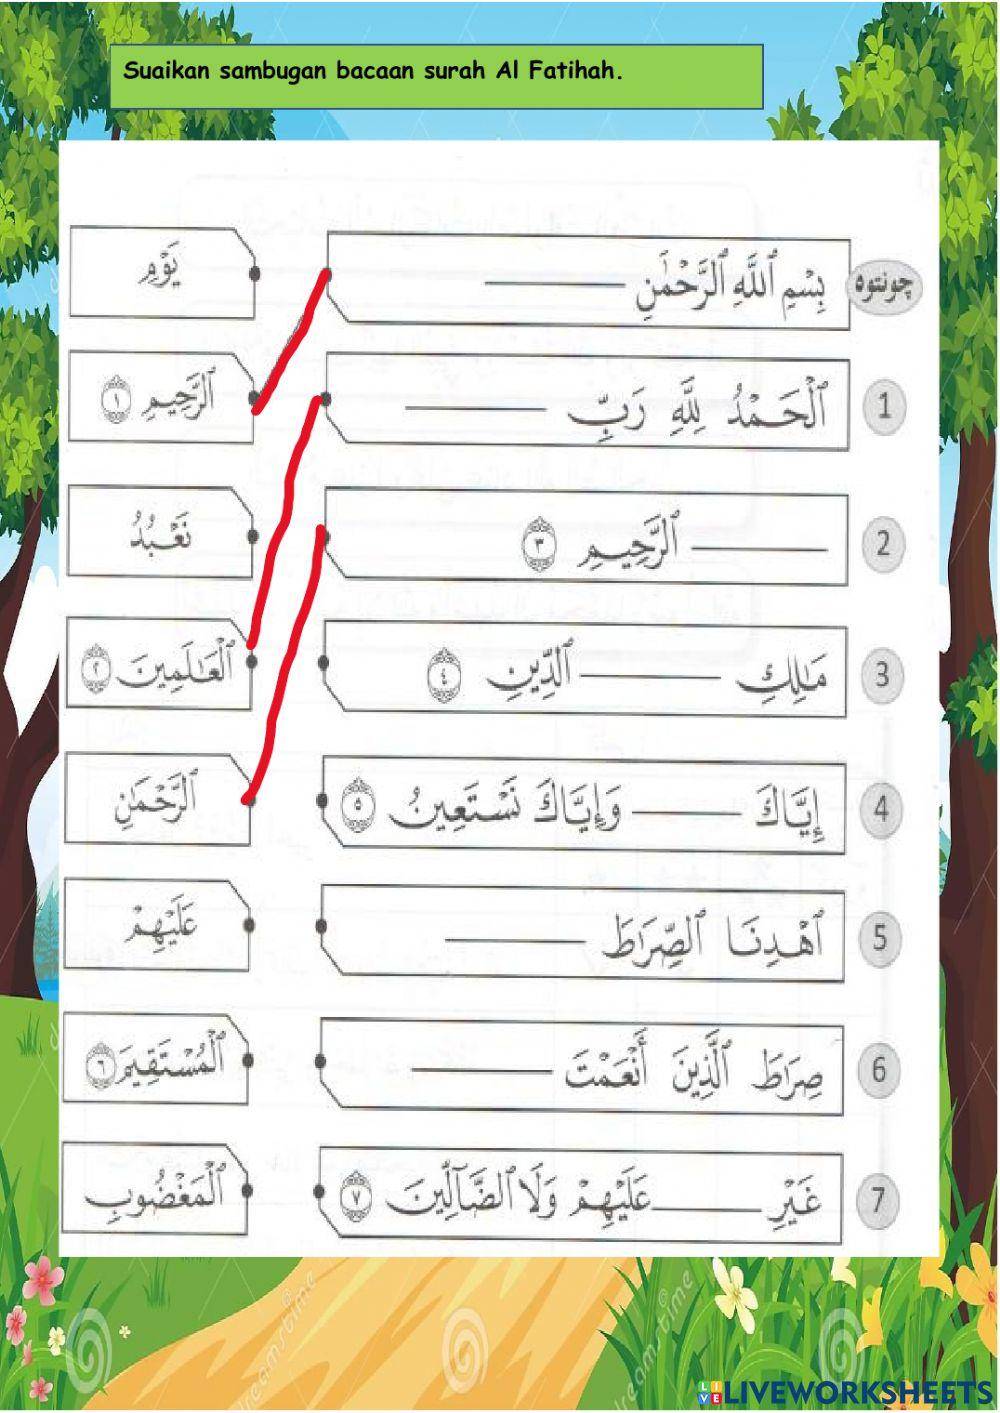 Suaikan sambugan bacaan surah Al Fatihah.
چونتوه بِسْمِ ٱللَّهِ ٱلرَّحْمَٰنِ ________
يَوْمِ
1 ٱلْحَمْدُ لِلَّهِ رَبِّ ________
ٱلرَّحِيمِ ١
2 ________ ٱلرَّحِيمِ ٣
نَعْبُدُ
3 مَٰلِكِ ________ ٱلدِّينِ ٤
ٱلْعَٰلَمِينَ ٢
4 إِيَّاكَ ________ وَإِيَّاكَ نَسْتَعِينُ ٥
ٱلرَّحْمَٰنِ
5 ٱهْدِنَا ٱلصِّرَٰطَ ________
عَلَيْهِمْ
6 صِرَٰطَ ٱلَّذِينَ أَنْعَمْتَ ________
ٱلْمُسْتَقِيمَ ٦
7 غَيْرِ ________ عَلَيْهِمْ وَلَا ٱلضَّآلِّينَ ٧
ٱلْمَغْضُوبِ
dreamstime
dreamstime
LIVEWORKSHEETS